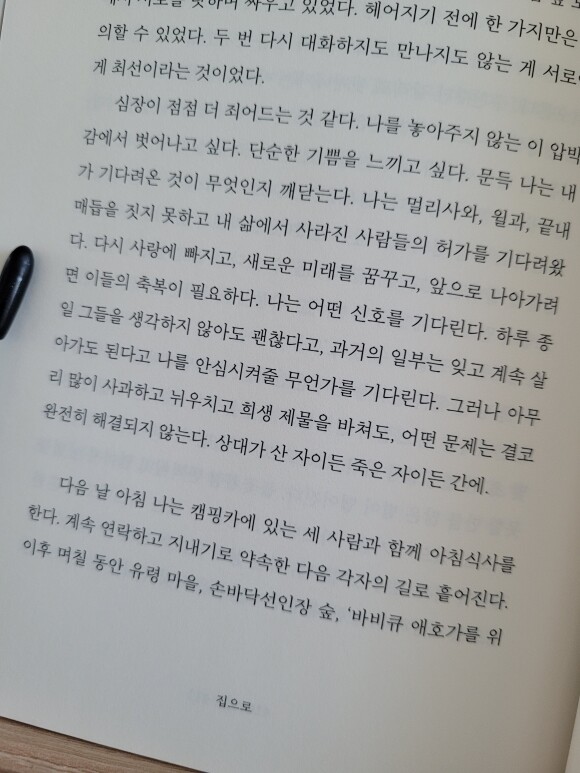 서로를 탓하며 싸우고 있었다. 헤어지기 전에 한 가지만은
의할 수 있었다. 두 번 다시 대화하지도 만나지도 않는 게 서로
게 최선이라는 것이었다.
심장이 점점 더 죄어드는 것 같다. 나를 놓아주지 않는 이 압박
감에서 벗어나고 싶다. 단순한 기쁨을 느끼고 싶다. 문득 나는 내
가 기다려온 것이 무엇인지 깨닫는다. 나는 멀리사와, 윌과, 끝내
매듭을 짓지 못하고 내 삶에서 사라진 사람들의 허가를 기다려왔
다. 다시 사랑에 빠지고, 새로운 미래를 꿈꾸고, 앞으로 나아가려
면 이들의 축복이 필요하다. 나는 어떤 신호를 기다린다. 하루 종
일 그들을 생각하지 않아도 괜찮다고, 과거의 일부는 잊고 계속 살
아가도 된다고 나를 안심시켜줄 무언가를 기다린다. 그러나 아무
리 많이 사과하고 뉘우치고 희생 제물을 바쳐도, 어떤 문제는 결코
완전히 해결되지 않는다. 상대가 산 자이든 죽은 자이든 간에.
다음 날 아침 나는 캠핑카에 있는 세 사람과 함께 아침식사를
한다. 계속 연락하고 지내기로 약속한 다음 각자의 길로 흩어진다.
이후 며칠 동안 유령 마을, 손바닥선인장 숲, ‘바비큐 애호가를 위
집으로